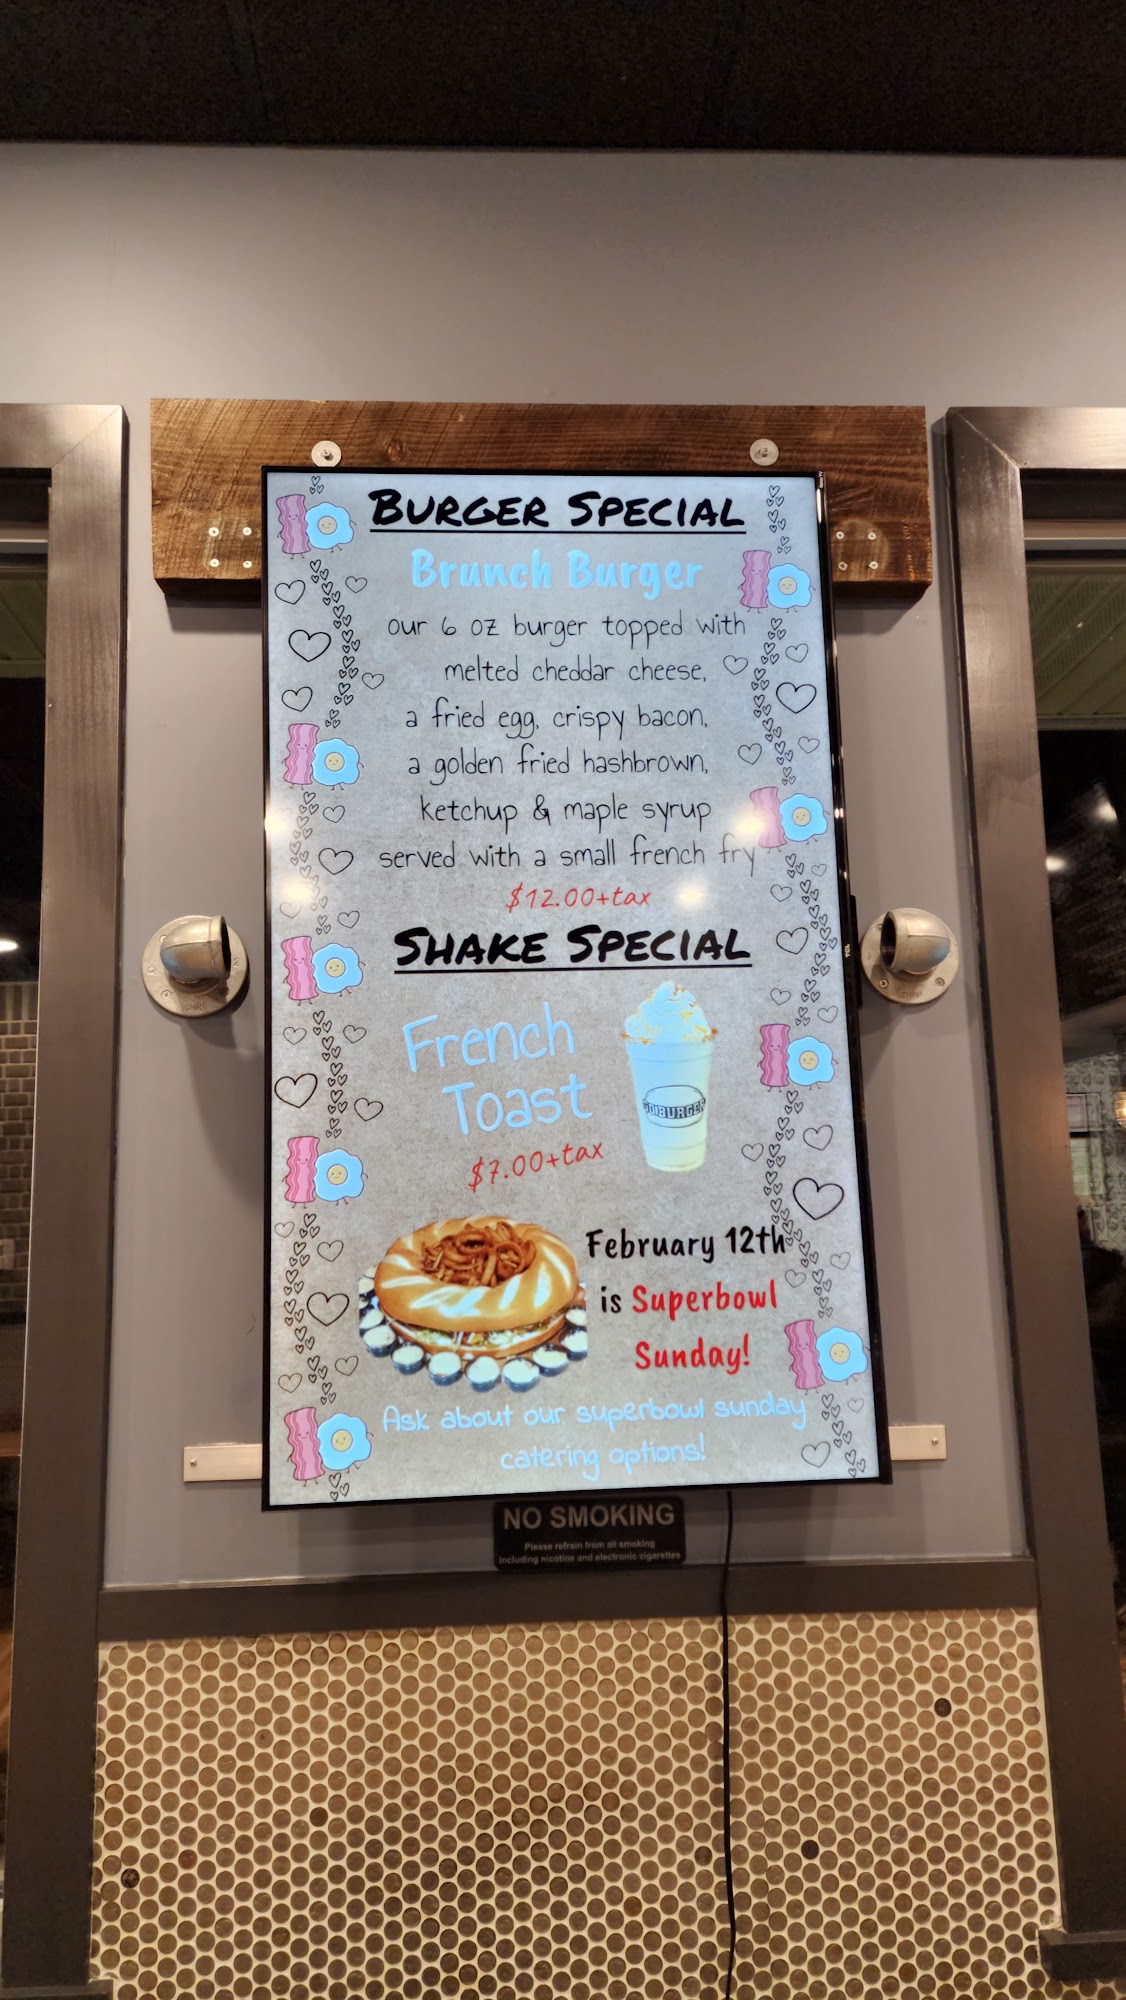 BURGER SPECIAL
Brunch Burger
our 6 oz burger topped with
melted cheddar cheese,
a fried egg, crispy bacon,
a golden fried hashbrown,
ketchup & maple syrup
served with a small french fry
$12.00+tax
SHAKE SPECIAL
French
Toast
$7.00+tax
February 12th
is Superbowl
Sunday!
Ask about our superbowl sunday
catering options!
TCL
CHINA
CHINA
NO SMOKING
Please refrain from all smoking
including nicotine and electronic cigarettes